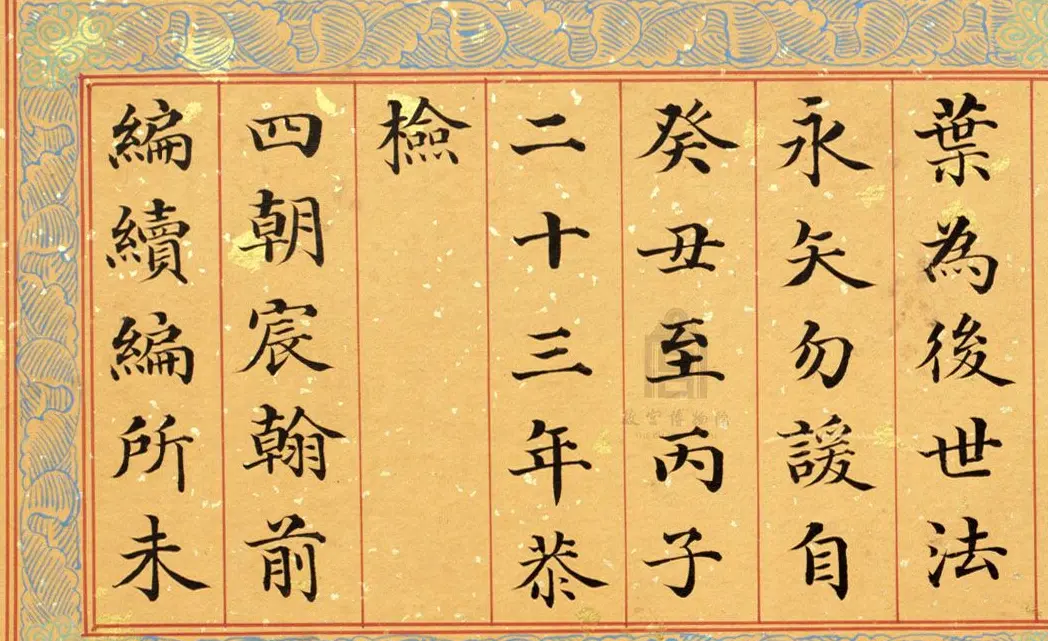 葉為後世法
永矢勿諼自
癸丑至丙子
二十三年恭
檢
四朝宸翰前
編續編所未
故宫博物院